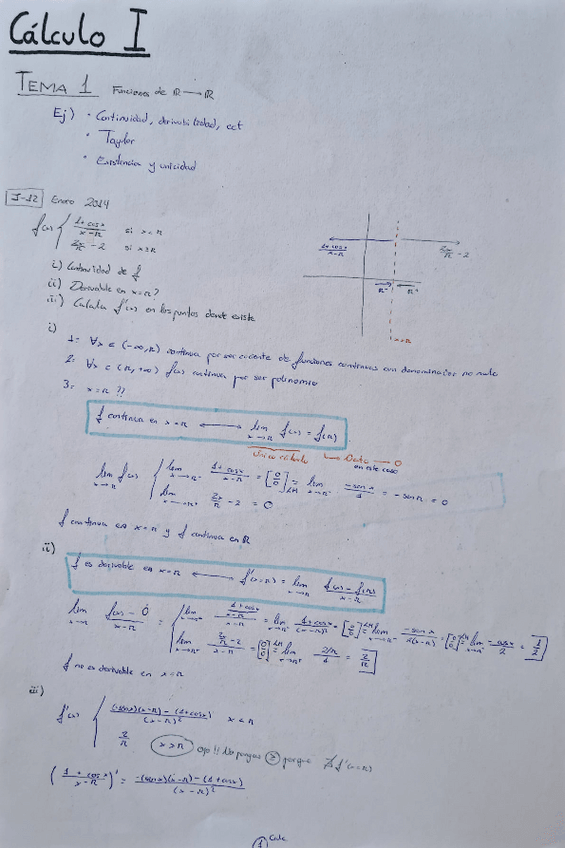 Cálculo I
TEMA 1 Funciones de ℝ → ℝ
Ej) · Continuidad, derivabilidad, ect
· Taylor
· Existencia y unicidad
J-12 Enero 2014
f(x) { (1+cosx)/(x-π) si x<π
2x/π - 2 si x≥π
(1+cosx)/(x-π) 2x/π - 2
π⁻ π⁺
x=π
i) Continuidad de f
ii) Derivable en x=π?
iii) Calcula f'(x) en los puntos donde existe
i)
1: ∀x ∈ (-∞,π) continua por ser cociente de funciones continuas con denominador no nulo
2: ∀x ∈ (π,+∞) f(x) continua por ser polinomio
3: x=π ??
f continua en x=π ⟷ lim x→π f(x) = f(π)
único cálculo Dato → 0
en este caso
lim x→π f(x) { lim x→π⁻ (1+cosx)/(x-π) = [0/0] =LH lim x→π⁻ -senx/1 = -senπ = 0
lim x→π⁺ 2x/π - 2 = 0
f continua en x=π y f continua en ℝ
ii)
f es derivable en x=π ⟷ f'(x=π) = lim x→π (f(x)-f(π))/(x-π)
lim x→π (f(x)-0)/(x-π) = { lim x→π⁻ ((1+cosx)/(x-π))/(x-π) = lim x→π⁻ (1+cosx)/(x-π)² = [0/0] =LH lim x→π⁻ -senx/2(x-π) = [0/0] =LH lim x→π⁻ -cosx/2 = 1/2]
lim x→π⁺ (2x/π - 2)/(x-π) = [0/0] =LH lim x→π⁺ (2/π)/1 = 2/π]
f no es derivable en x=π
iii)
f'(x) { ((-senx)(x-π) - (1+cosx))/(x-π)² x<π
2/π x>π ojo!! No pongas ≥ porque ∄ f'(x=π)
((1+cosx)/(x-π))' = (-(senx)(x-π) - (1+cosx))/(x-π)²
1 Calc